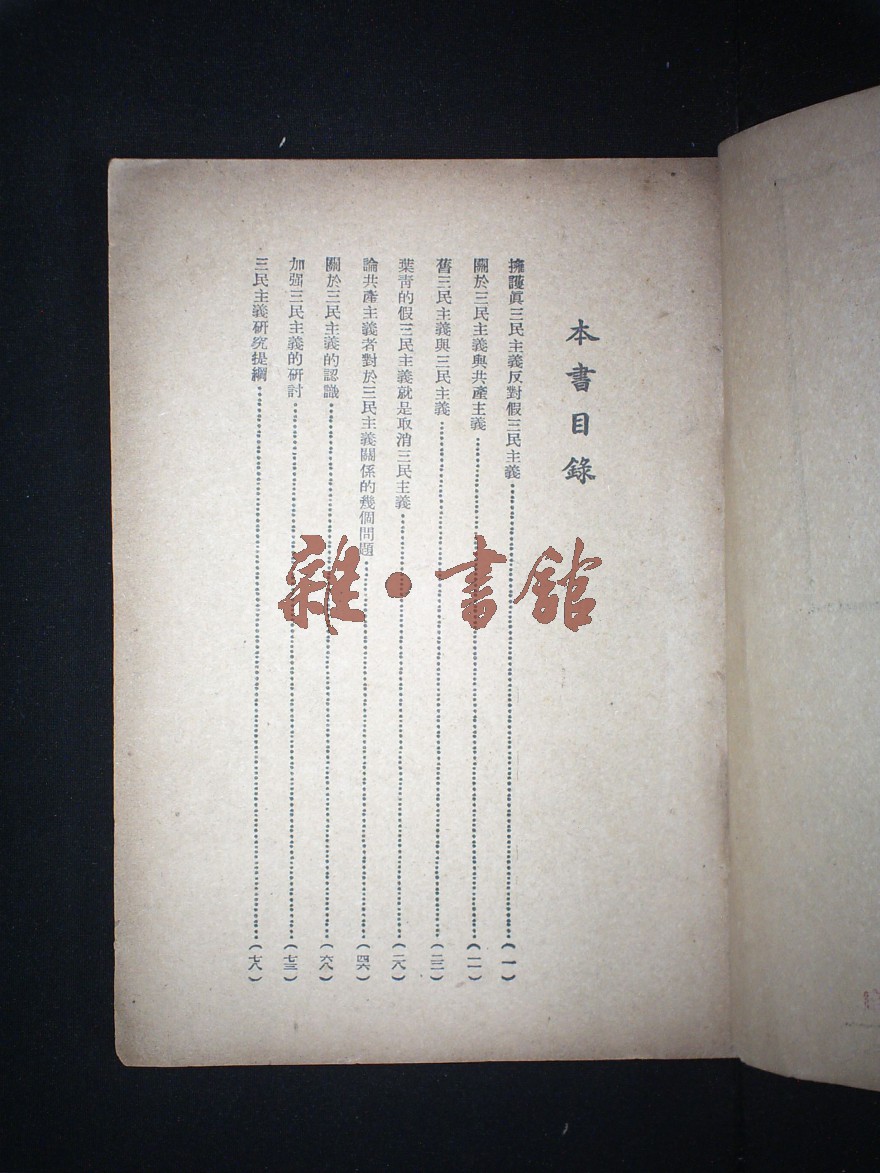 本書目錄
擁護眞三民主義反對假三民主義……(一)
關於三民主義與共產主義……(一一)
舊三民主義與三民主義……(二三)
葉靑的假三民主義就是取消三民主義……(二八)
論共產主義者對於三民主義關係的幾個問題……(四六)
關於三民主義的認識……(六八)
加强三民主義的研討……(七三)
三民主義研究提綱……(七八)
雜·書館